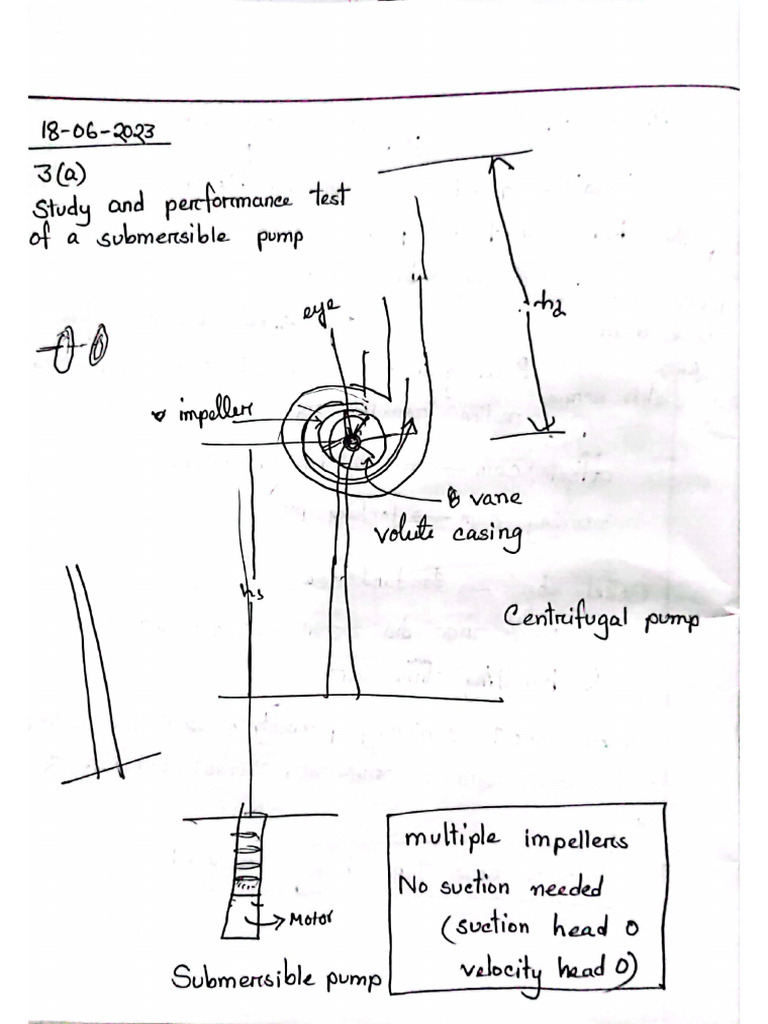 18-06-2023
3(a)
Study and performance test
of a submersible pump
h2
eye
impeller
vane
volute casing
hs
Centrifugal pump
multiple impellers
No suction needed
(suction head 0
velocity head 0)
Motor
Submersible pump